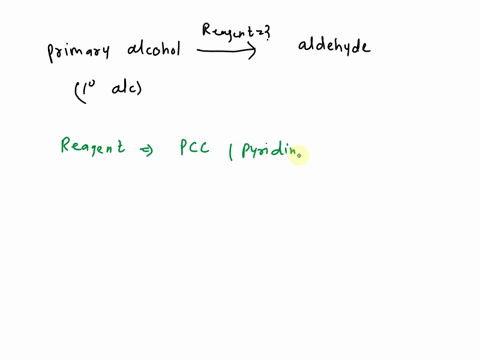 primary alcohol Reagent=? ⟶ aldehyde
(1° alc)
Reagent ⇒ PCC ( Pyridin